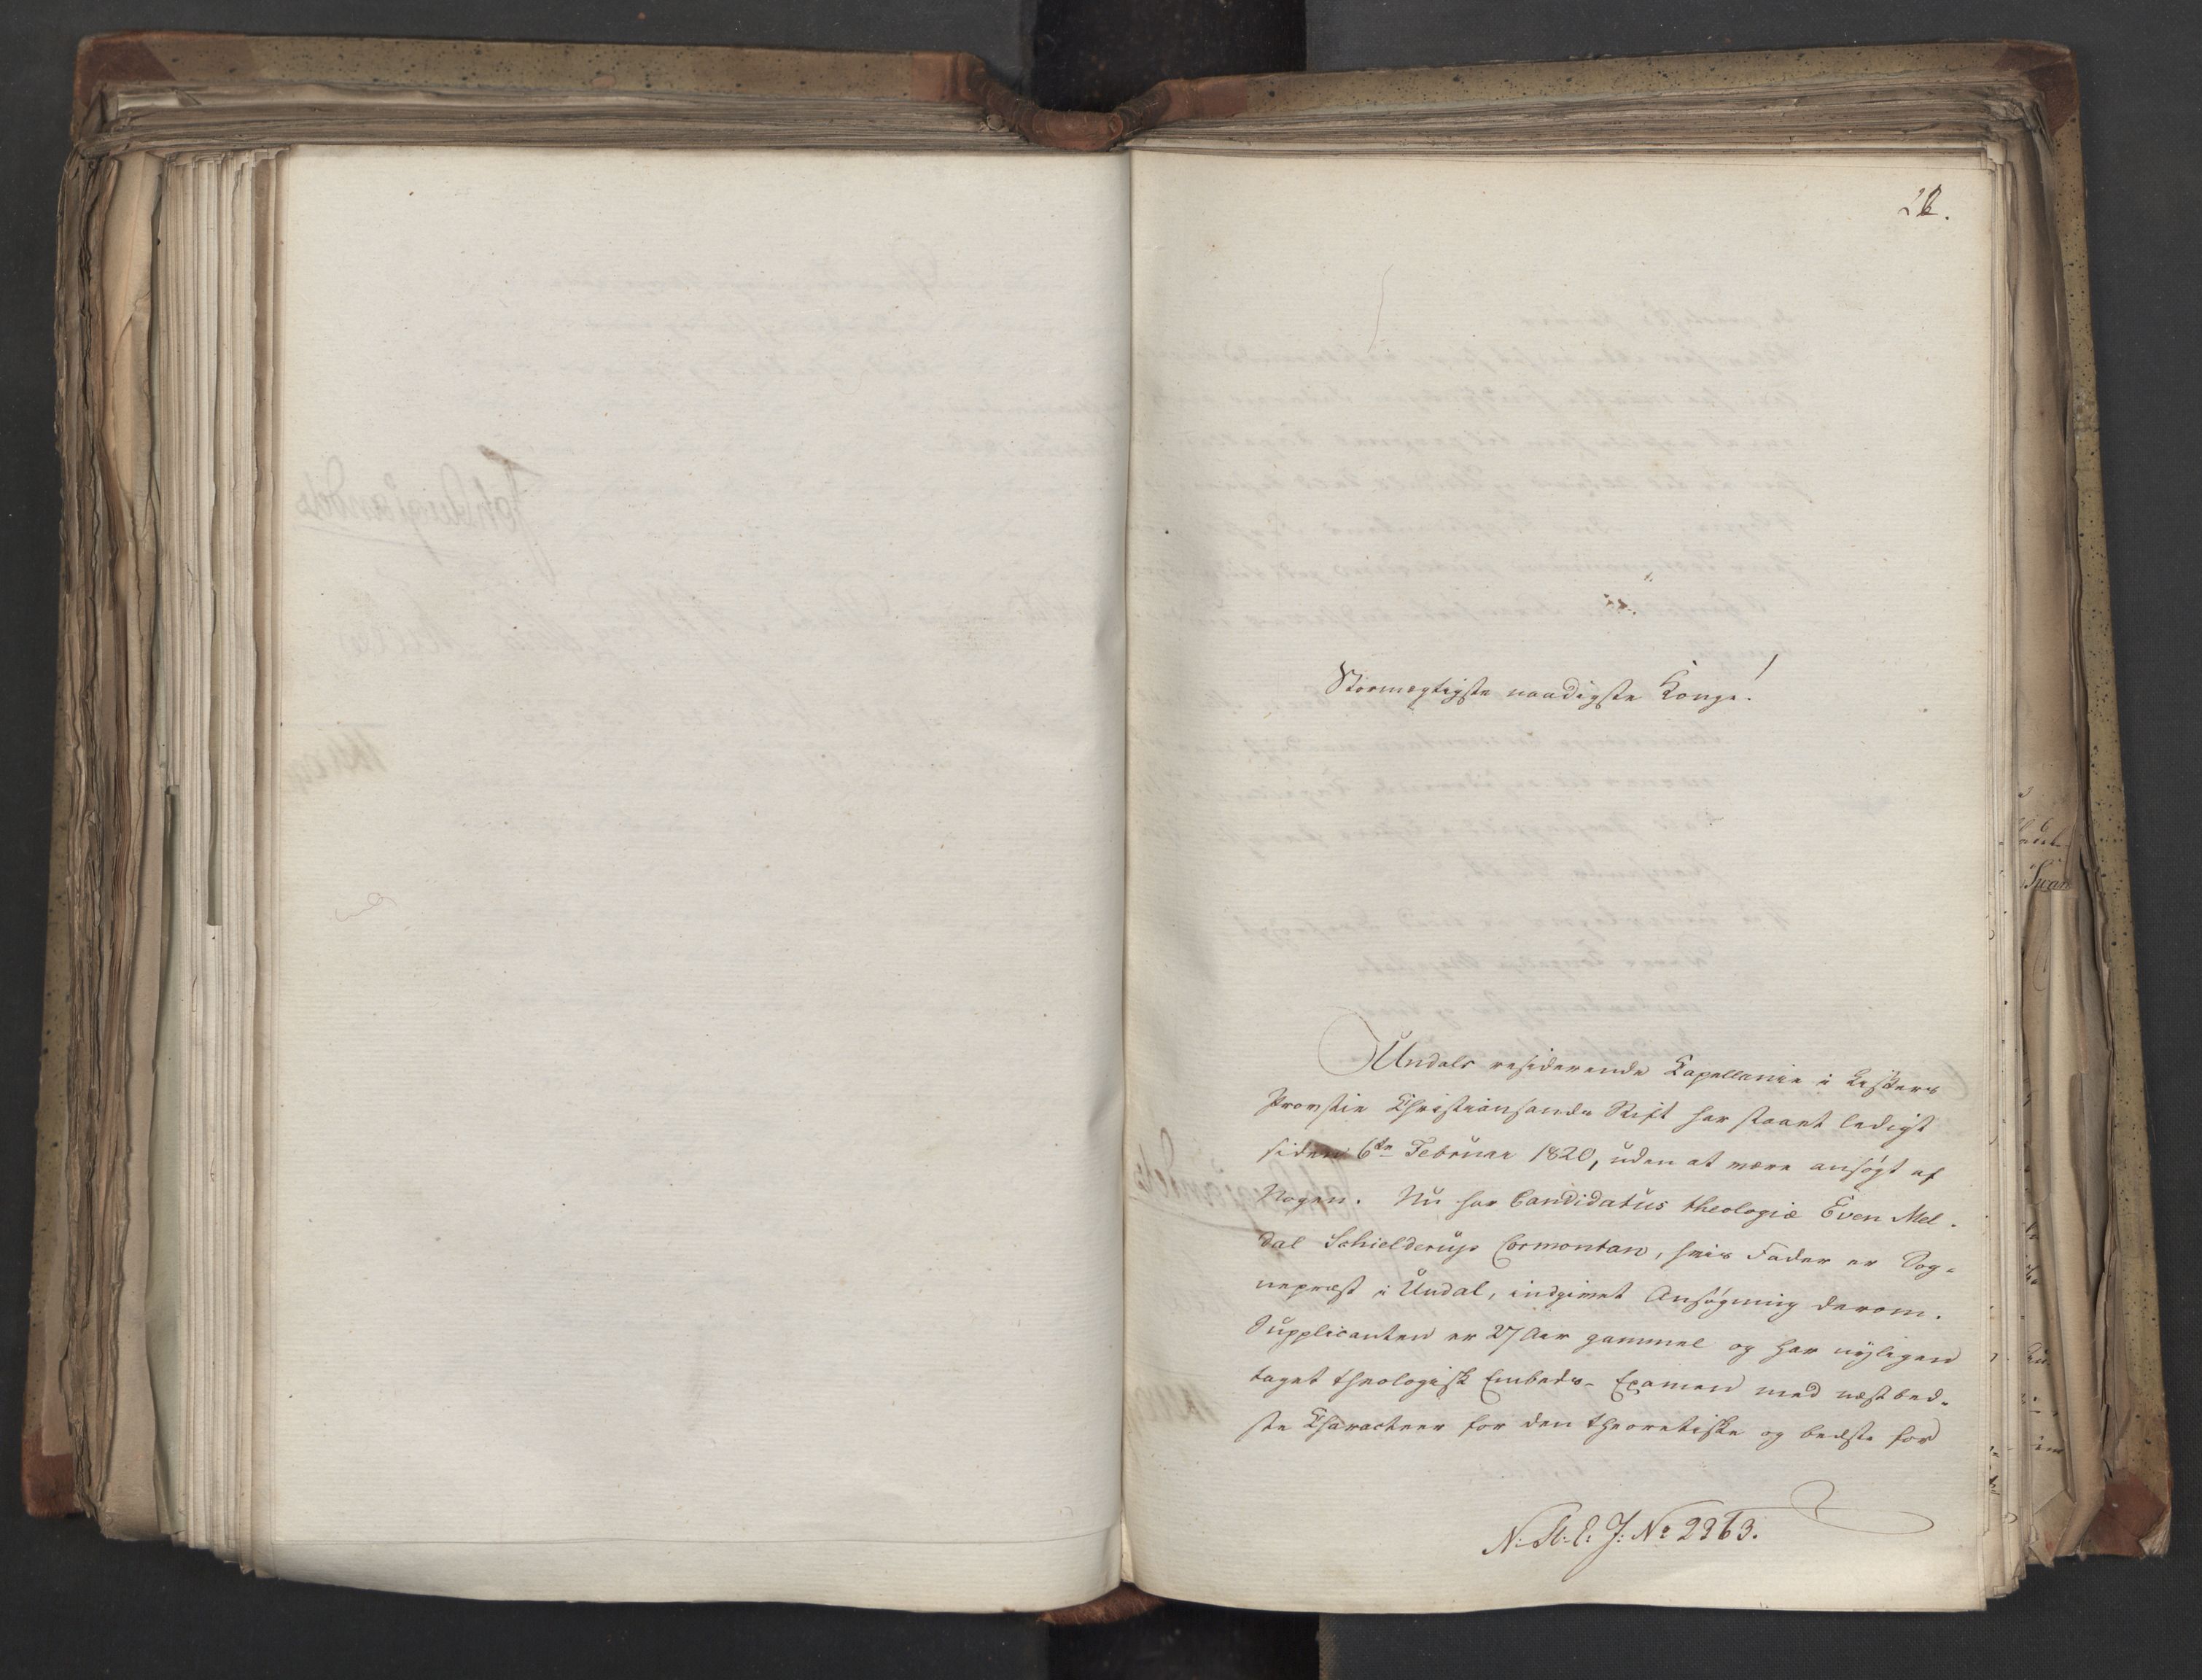 Stormægtigste naadigste Konge!
Undals residerende Capellanie i Listers
Provstie Christiansands Stift har staaet ledigt
siden 6te Februar 1820, uden at være ansøgt af
Nogen. Nu har Candidatus theologiæ Even Mel-
dal Schielderup Cormontan, hvis Fader er Sog-
nepræst i Undal, indgivet Ansøgning derom.
Supplicanten er 27 Aar gammel og har nyligen
taget theologisk Embeds-Examen med næstbed-
ste Characteer for den theoretiske og bedste for
N. St. E. J. No 2363.